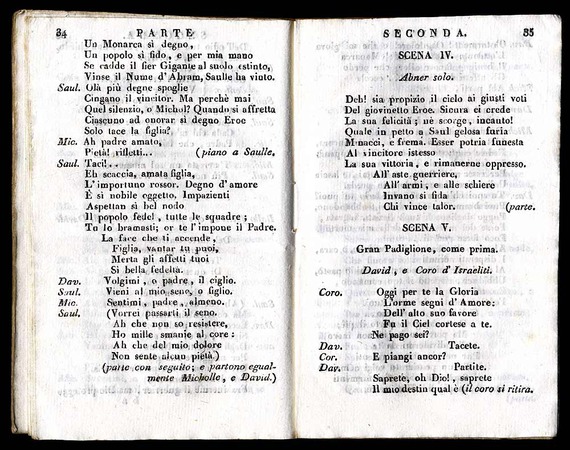 34 PARTE
Un Monarca sì degno,
Un popolo sì fido, e per mia mano
Se cadde il fier Gigante al suolo estinto,
Vinse il Nume d'Abram, Saulle ha vinto.
Saul. Olà più degne spoglie
Cingano il vincitor. Ma perchè mai
Quel silenzio, o Michol? Quando si affretta
Ciascuno ad onorar sì degno Eroe
Solo tace la figlia?
Mic. Ah padre amato,
Pietà! rifletti... (piano a Saulle.
Saul. Taci!..
Eh scaccia, amata figlia,
L'importuno rossor. Degno d'amore
È sì nobile oggetto. Impazienti
Aspettan sì bel nodo
Il popolo fedel, tutte le squadre;
Tu lo bramasti; or te l'impone il Padre.
La face che ti accende,
Figlia, vantar tu puoi,
Merta gli affetti tuoi
Sì bella fedeltà.
Dav. Volgimi, o padre, il ciglio.
Saul. Vieni al mio seno, o figlio.
Mic. Sentimi, padre, almeno.
Saul. (Vorrei passarti il seno.
Ah che non so resistere,
Ho mille smanie al core:
Ah che del mio dolore
Non sente alcun pietà.)
(parte con seguito; e partono egual-
mente Micholle, e David.)
SECONDA. 35
SCENA IV.
Abner solo.
Deh! sia propizio il cielo ai giusti voti
Del giovinetto Eroe. Sicura ei crede
La sua felicità; nè scorge, incauto!
Quale in petto a Saul gelosa furia
Minacci, e frema. Esser potria funesta
Al vincitore istesso
La sua vittoria, e rimanerne oppresso.
All'aste guerriere,
All'armi, e alle schiere
Invano si fida
Chi vince talor. (parte.
SCENA V.
Gran Padiglione, come prima.
David, e Coro d'Israeliti.
Coro. Oggi per te la Gloria
L'orme segni d'Amore:
Dell'alto suo favore
Fu il Ciel cortese a te.
Ne pago sei?
Dav. Tacete.
Cor. E piangi ancor?
Dav. Partite.
Saprete, oh Dio!, saprete
Il mio destin qual è (il coro si ritira.